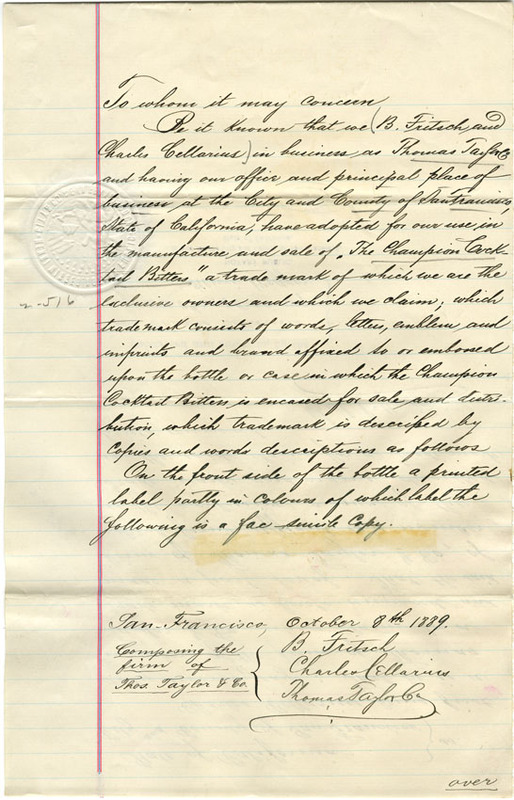 To whom it may concern
Be it Known that we (B. Fritsch and
Charles Cellarius) in business as Thomas Taylor &
and having our office and principal place of
business at the City and County of San Francisco,
State of California, have adopted for our use, in
the manufacture and sale of „The Champion Cock-
tail Bitters" a trade mark of which we are the
exclusive owners and which we claim; which
trade mark consists of words, letters, emblem and
imprints and brand affixed to or embossed
upon the bottle or case in which the Champion
Cocktail Bitters is encased for sale and distri-
bution, which trademark is described by
copies and words descriptions as follows
On the front side of the bottle a printed
label partly in colours of which label the
following is a fac-simile copy.
2-516
San Francisco, October 8th 1889.
Composing the
firm of
Thos. Taylor & Co.
B. Fritsch
Charles Cellarius
Thomas Taylor Co
over